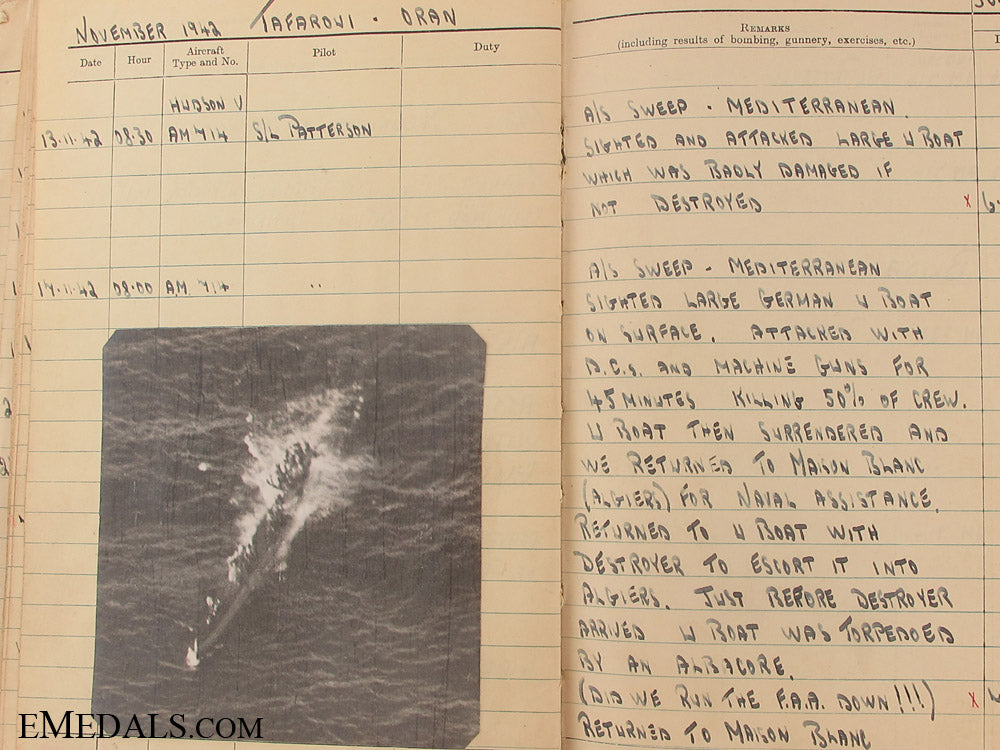 NOVEMBER 1942 / TAFAROUI . ORAN
Date Hour Aircraft Type and No. Pilot Duty
HUDSON V
13.11.42 08.30 AM 714 S/L PATTERSON
17.11.42 08.00 AM. 714 "
REMARKS
(including results of bombing, gunnery, exercises, etc.)
A/S SWEEP - MEDITERRANEAN
SIGHTED AND ATTACKED LARGE U BOAT
WHICH WAS BADLY DAMAGED IF
NOT DESTROYED x
A/S SWEEP - MEDITERRANEAN
SIGHTED LARGE GERMAN U BOAT
ON SURFACE. ATTACKED WITH
D.C.s. AND MACHINE GUNS FOR
45 MINUTES KILLING 50% OF CREW.
U BOAT THEN SURRENDERED AND
WE RETURNED TO MAISON BLANC
(ALGIERS) FOR NAVAL ASSISTANCE.
RETURNED TO U BOAT WITH
DESTROYER TO ESCORT IT INTO
ALGIERS. JUST BEFORE DESTROYER
ARRIVED U BOAT WAS TORPEDOED
BY AN ALBACORE.
(DID WE RUN THE F.A.A. DOWN!!!) x
RETURNED TO MAISON BLANC
EMEDALS.COM